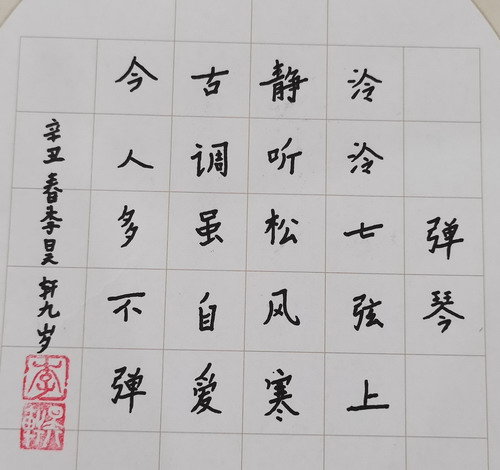 弹琴
泠泠七弦上
静听松风寒
古调虽自爱
今人多不弹
辛丑春李昊轩九岁
李
昊軒